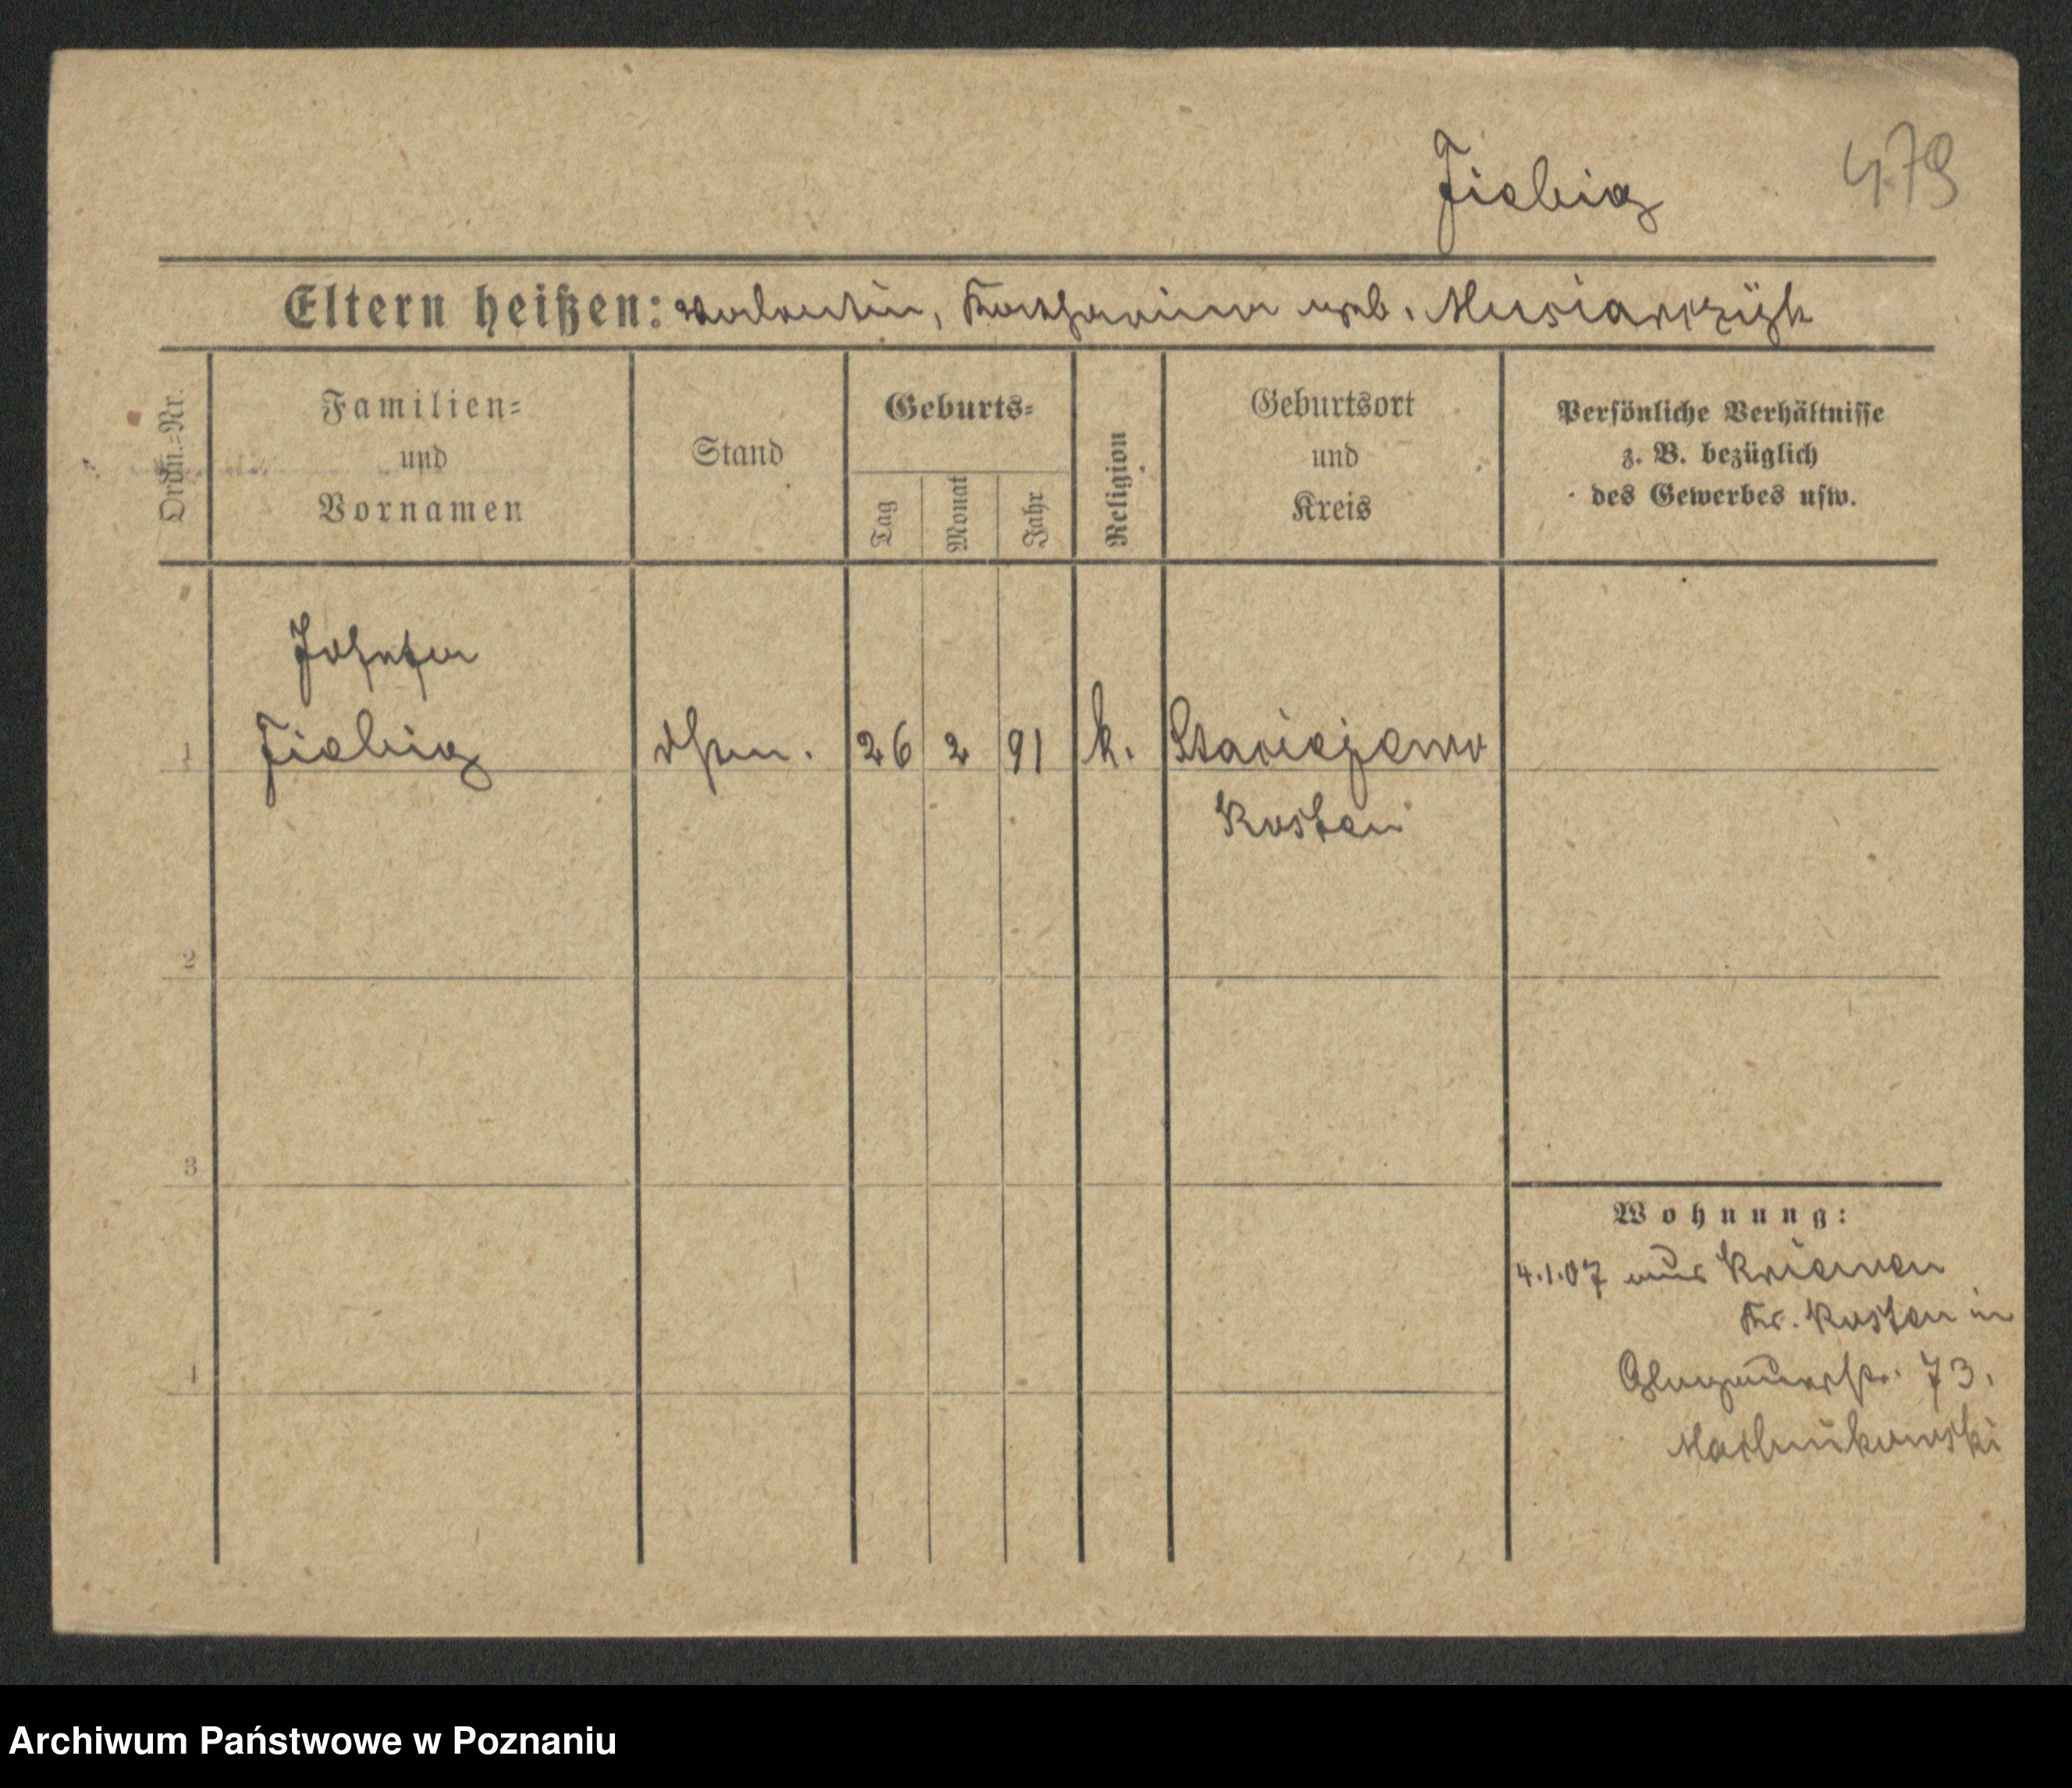 Fiebig 479
Eltern heißen: Valentin, Katharina geb. Musiarczÿk
Ordn.-Nr.
Familien-
und
Vornamen
Stand
Geburts-
Tag
Monat
Jahr
Religion
Geburtsort
und
Kreis
Persönliche Verhältnisse
z. B. bezüglich
des Gewerbes usw.
Josefa
1 Fiebig 26 2 91 k. Staniejewo
Kosten
2
3
Wohnung:
4.1.07 aus Kriewen
Kr. Kosten in
4
Glogauerstr. 73.
Archiwum Państwowe w Poznaniu